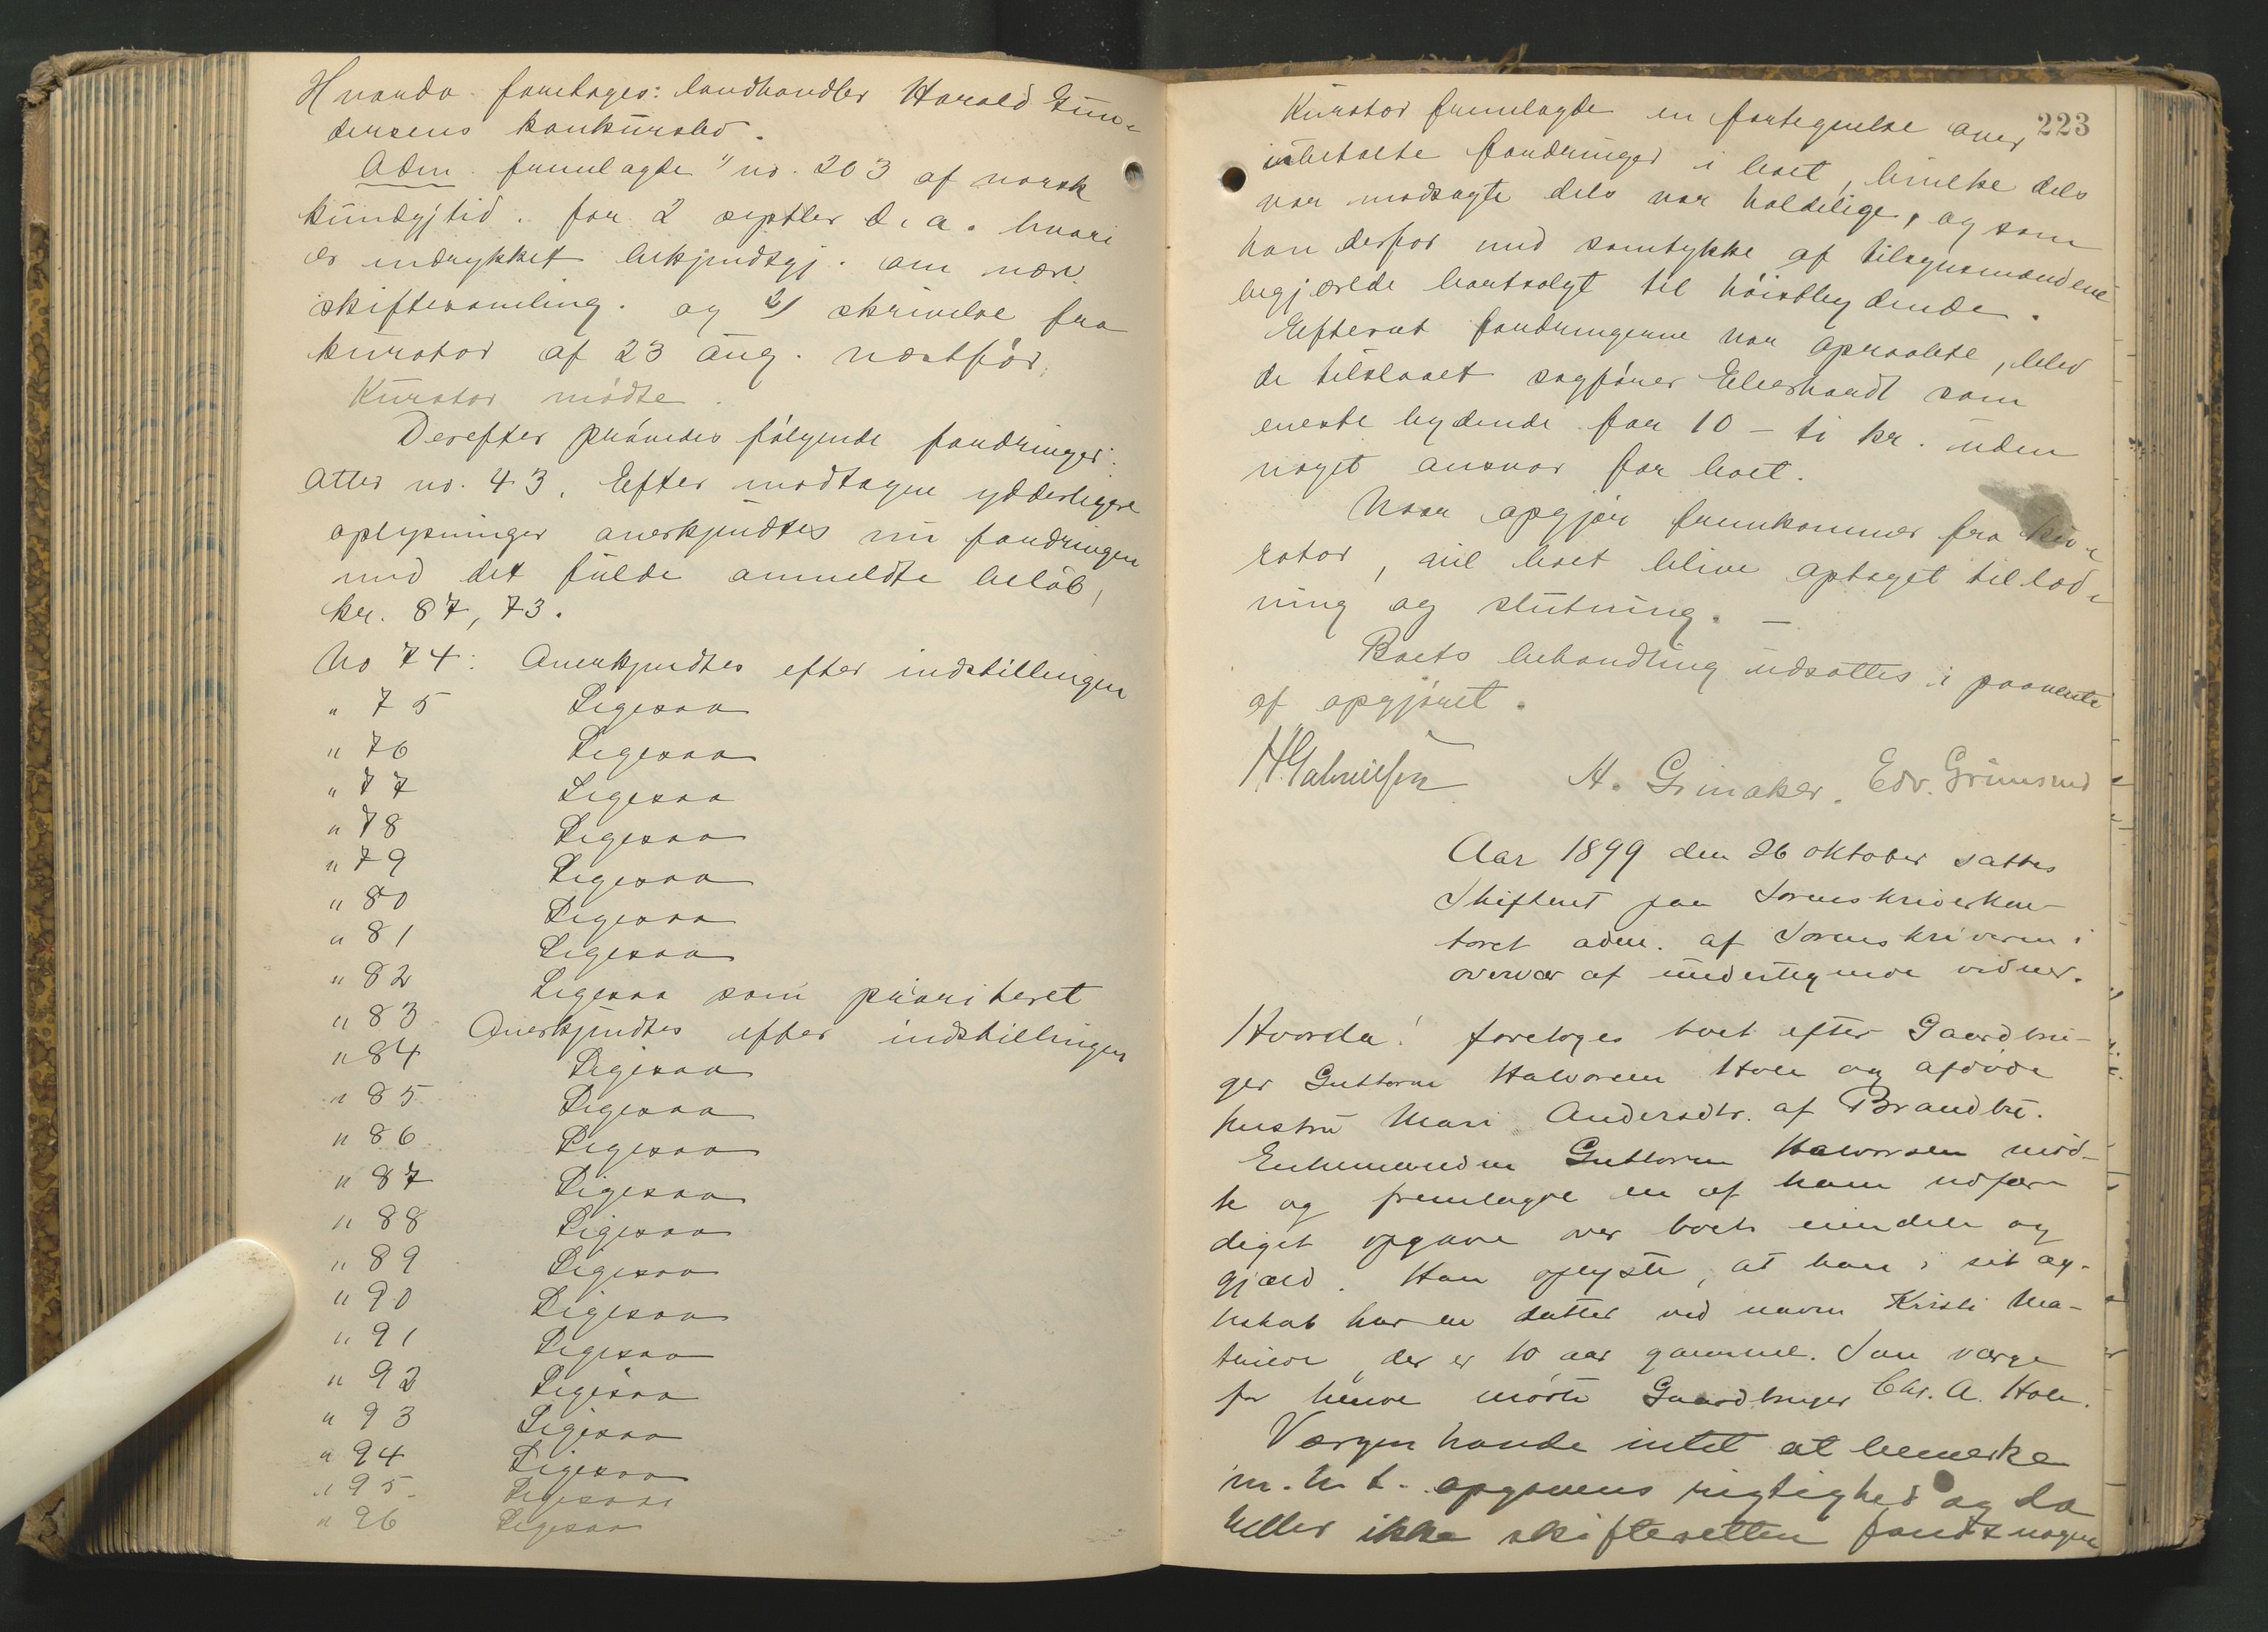 Hvorda foretages: landhandler Harald Gun-
dersens konkursbo.
Adm. fremlagde 1) no. 203 af norsk
kundgjtid. for 2 septbr d. a. hvori
er indrykket bekjendtgj. om nærv.
skiftesamling. og 2) skrivelse fra
kurator af 23 aug. næstfør.
Kurator mødte.
Derefter prøvedes følgende fordringer:
Atter no. 43. Efter modtagne yderligere
oplysninger anerkjendtes nu fordringen
med det fulde anmeldte beløb,
kr. 87,73.
No 74: Anerkjendtes efter indstillingen
" 75 Ligesaa
" 76 Ligesaa
" 77 Ligesaa
" 78 Ligesaa
" 79 Ligesaa
" 80 Ligesaa
" 81 Ligesaa
" 82 Ligesaa som prioriteret
" 83 Anerkjendtes efter indstillingen
" 84 Ligesaa
" 85 Ligesaa
" 86 Ligesaa
" 87 Ligesaa
" 88 Ligesaa
" 89 Ligesaa
" 90 Ligesaa
" 91 Ligesaa
" 92 Ligesaa
" 93 Ligesaa
" 94 Ligesaa
" 95 Ligesaa
" 96 Ligesaa
223
Kurator fremlagde en fortegnelse over
ubetalte fordringer i boet, hvilke dels
var modsagte dels var holdelige, og som
han derfor med samtykke af tilsynsmændene
begjærede bortsolgt til høistbydende.
Efterat fordringerne var opraabte, blev
de tilslaaet sagfører Eberhardt som
eneste bydende for 10 - ti kr. uden
noget ansvar for boet.
Naar opgjør fremkommer fra ku-
rator, vil boet blive optaget til lod-
ning og slutning. —
Boets behandling udsattes i paavente
af opgjøret.
H. Gabrielsen H. Grinaker. Edv. Grimsrud
Aar 1899 den 26 oktober sattes
Skifteret paa Sorenskriverkon-
toret adm. af Sorenskriveren i
overvær af undertegnede vidner.
Hvorda! foretoges boet efter Gaardbru-
ger Guttorm Halvorsen Hole og afdøde
hustru Mari Andersdtr. af Brandbu.
Enkemanden Guttorm Halvorsen mød-
te og fremlagde en af ham udfær-
diget opgave over boets eiendele og
gjæld. Han oplyste, at han i sit æg-
teskab har en datter ved navn Kristi Ma-
der er 10 aar gammel. Som værge
for henne mødte Gaardbruger Chr. A. Hole.
Værgen havde intet at bemerke
m. h. t. opgavens rigtighed og da
heller ikke skifteretten fandt nogen